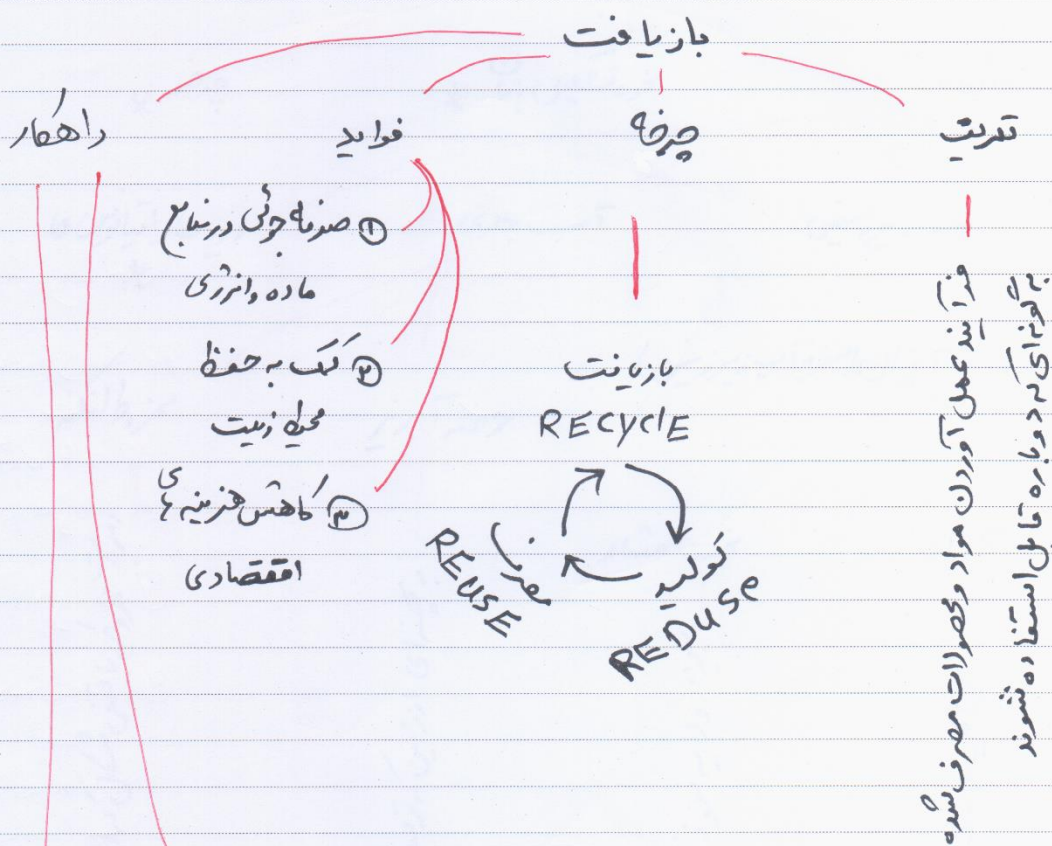 بازیافت
تعریف
چرخه
فواید
راهکار
فرآیند عمل آوردن مواد و محصولات مصرف شده
به گونه‌ای که دوباره قابل استفاده شوند
بازیافت
RECYCLE
تولید
REDUSE
مصرف
REUSE
① صرفه جوئی در منابع
ماده و انرژی
② کمک به حفظ
محیط زیست
③ کاهش هزینه های
اقتصادی